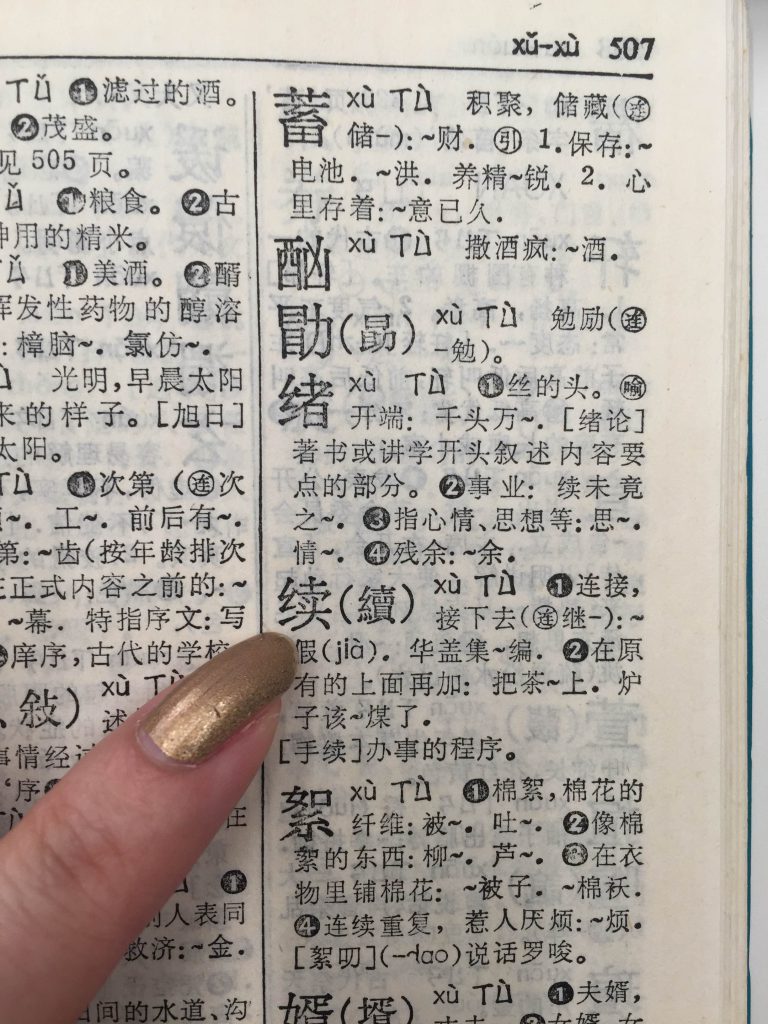 xǔ–xù 507
ㄒㄩˇ ❶滤过的酒。
❷茂盛。
见505页。
❶粮食。❷古
神用的精米。
❶美酒。❷醑
挥发性药物的醇溶
：樟脑~．氯仿~．
光明，早晨太阳
来的样子。[旭日]
太阳。
ㄒㄩˋ ❶次第（㊣次
~．工~．前后有~．
第：~齿（按年龄排次
在正式内容之前的：~
~幕．特指序文：写
庠序，古代的学校
、敍）xù ㄒㄩˋ
述
事情经过
‘序
在
❶
别人表同
救济：~金．
田间的水道、沟
蓄 xù ㄒㄩˋ 积聚，储藏（㊣
储–）：~财．㊣ 1.保存：~
电池．~洪．养精~锐．2.心
里存着：~意已久．
酗 xù ㄒㄩˋ 撒酒疯：~酒．
勖（勗） xù ㄒㄩˋ 勉励（㊣
–勉）。
绪 xù ㄒㄩˋ ❶丝的头。㊣
开端：千头万~．[绪论]
著书或讲学开头叙述内容要
点的部分。❷事业：续未竟
之~．❸指心情、思想等：思~．
情~．❹残余：~余．
续（續） xù ㄒㄩˋ ❶连接，
接下去（㊣继–）：~
假(jià)．华盖集~编．❷在原
有的上面再加：把茶~上．炉
子该~煤了．
[手续]办事的程序。
絮 xù ㄒㄩˋ ❶棉絮，棉花的
纤维：被~．吐~．❷像棉
絮的东西：柳~．芦~．❸在衣
物里铺棉花：~被子．~棉袄．
❹连续重复，惹人厌烦：~烦．
[絮叨](–dao)说话罗唆。
婿（壻） xù ㄒㄩˋ ❶夫婿，
丈夫．❷女婿，女